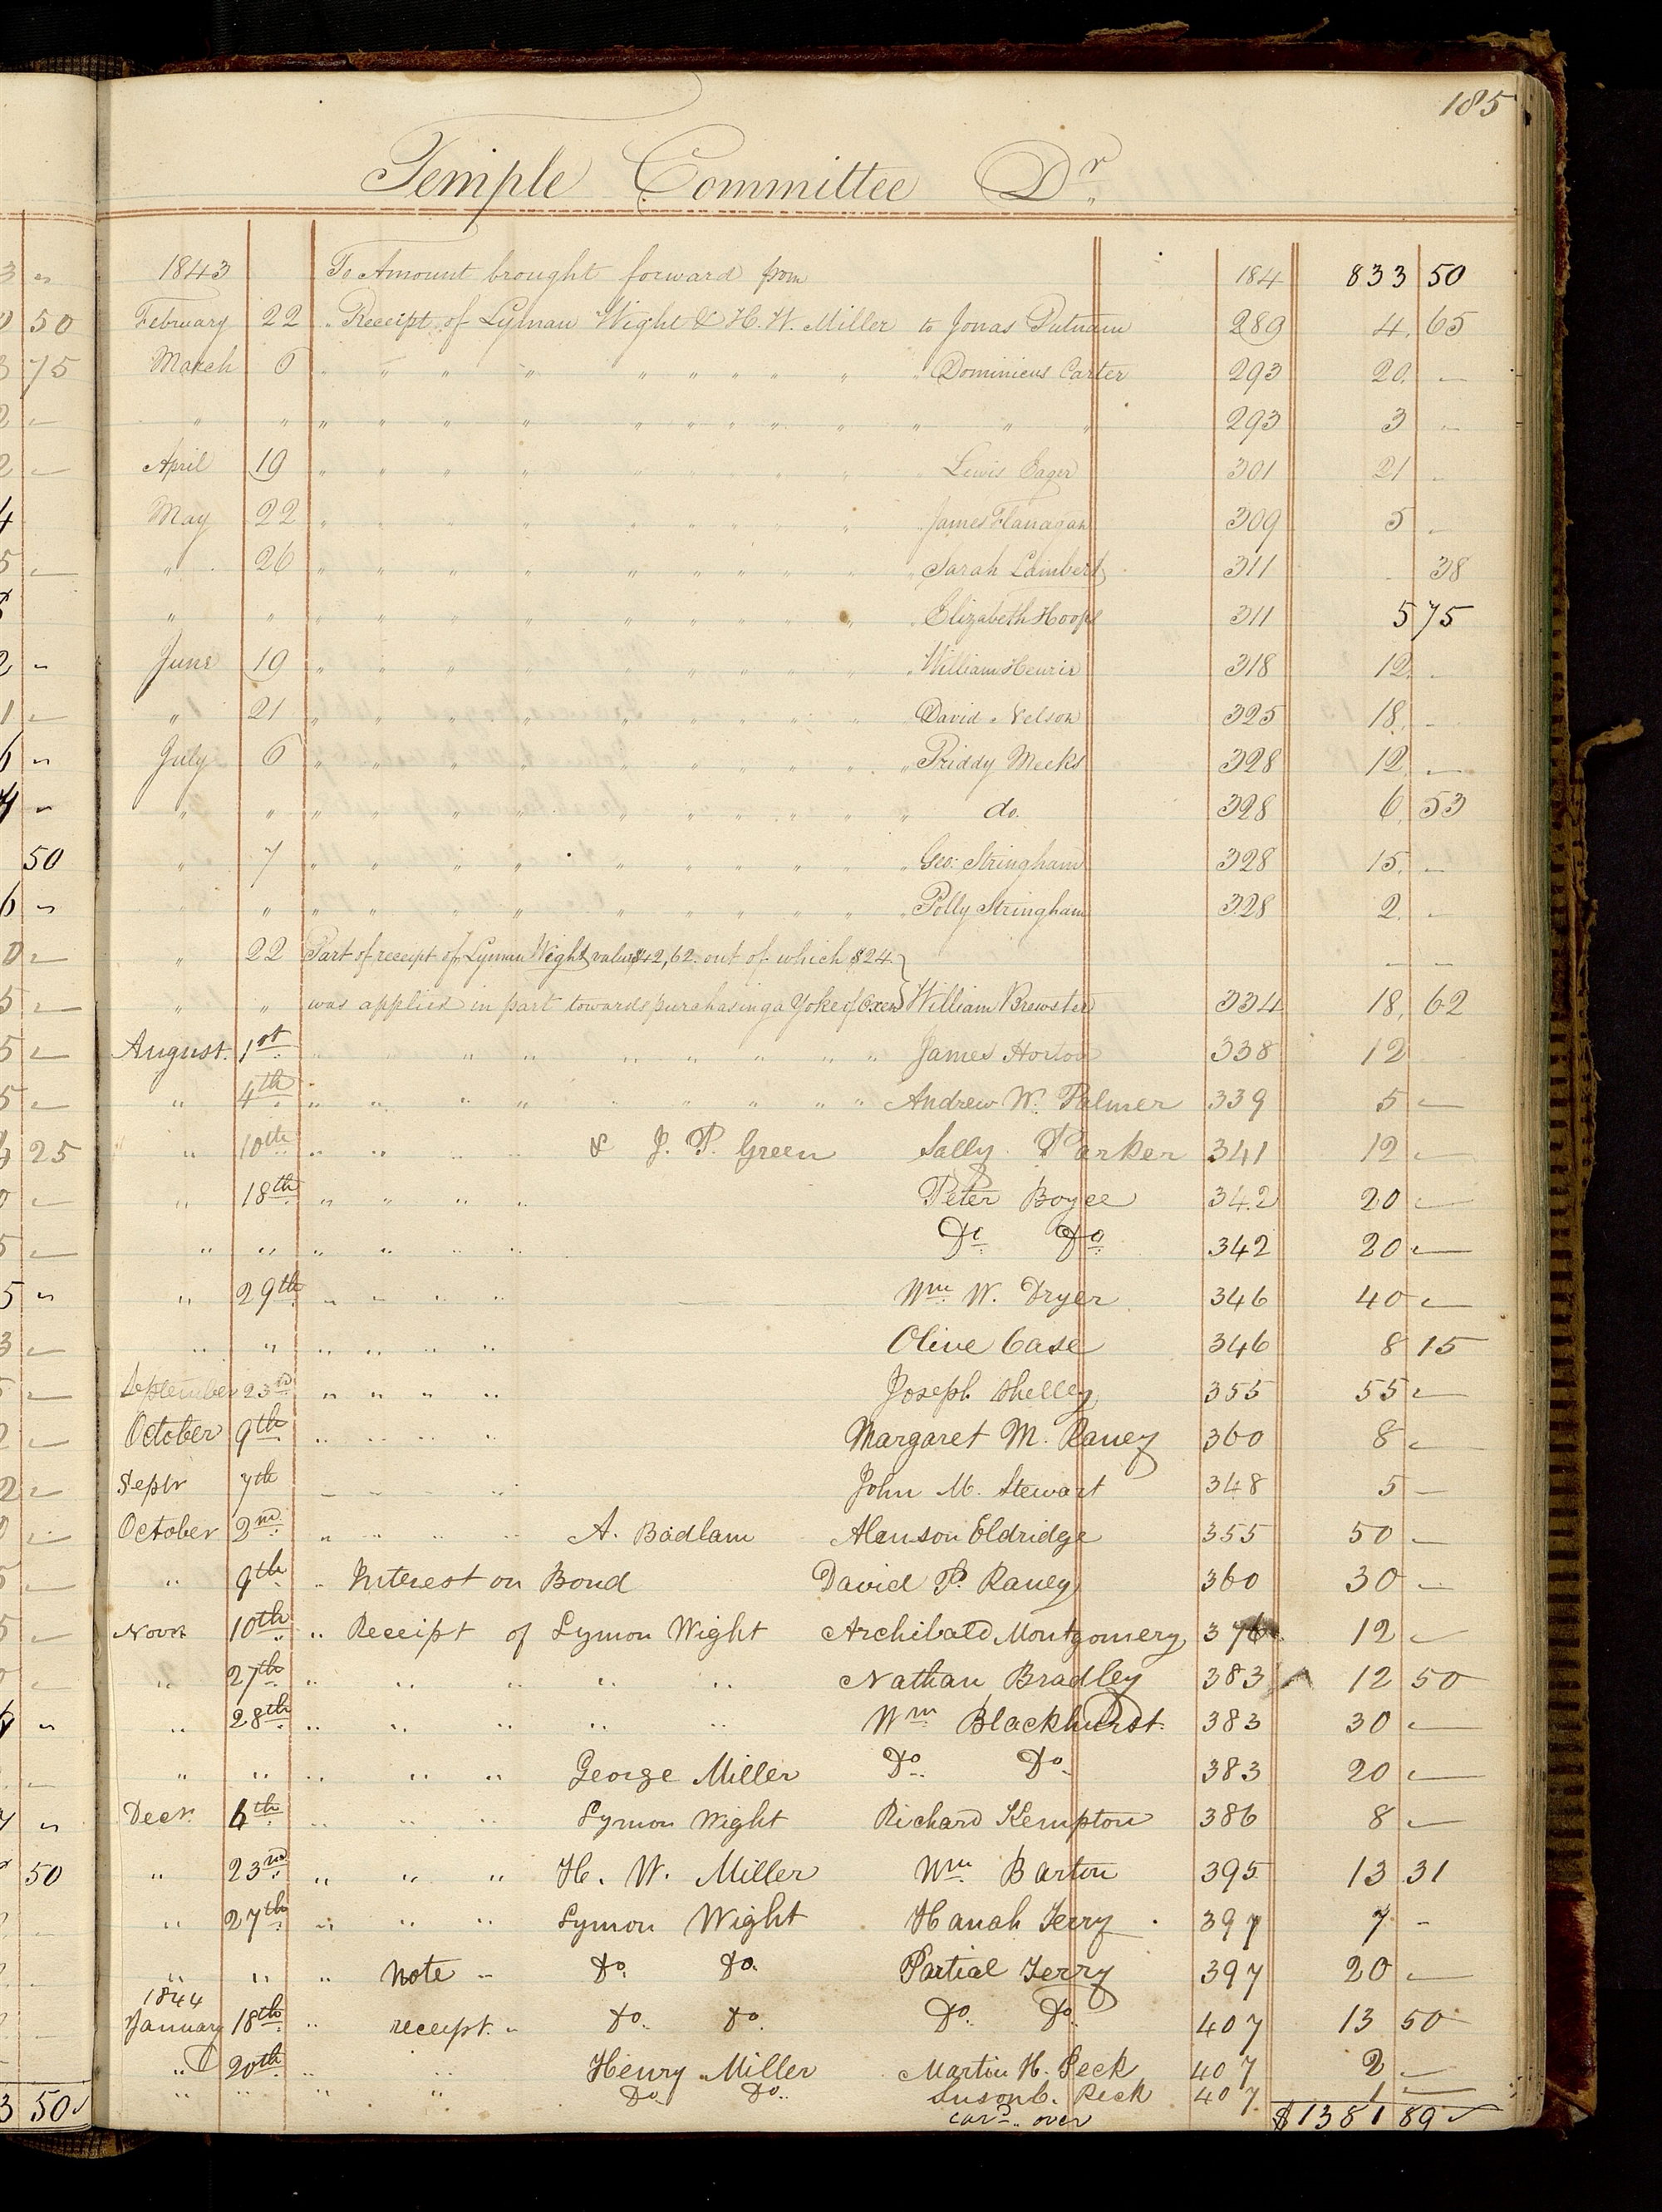 185
Temple Committee Dr.
1843 To Amount brought forward from 184 833 50
February 22 " Receipt of Lyman Wight & H. W. Miller to Jonas Putnam 289 4. 65
March 6 " " " " " " " " " " Dominicus Carter 293 20. —
" " " " " " " " " " " " " " 293 3 —
April 19 " " " " " " " " " " Lewis Eager 301 21 "
May 22 " " " " " " " " " " James Flanagan 309 5 "
" 26 " " " " " " " " " " Sarah Lambert 311 38
" " " " " " " " " " " " Elizabeth Hoops 311 5 75
June 19 " " " " " " " " " " William Henrie 318 12. "
" 21 " " " " " " " " " David Nelson 325 18. —
July 6 " " " " " " " " " " Priddy Meeks 328 12 —
" " " " " " " " " " " " do. 328 6. 53
" 7 " " " " " " " " " " Geo: Stringham 328 15. —
" " " " " " " " " " " " Polly Stringham 328 2. "
" 22 Part of receipt of Lyman Wight value $42,62 out of which $24 } — —
" " was applied in part towards purchasing a Yoke of Oxen } William Brewster 334 18. 62
August. 1st " " " " " " " " " James Horton 338 12
" 4th " " " " " " " " " Andrew W. Palmer 339 5 —
" 10th " " " " & J. P. Green Sally Parker 341 12 —
" 18th " " " " Peter Boyce 342 20 —
" " " " " " Do. Do. 342 20 —
" 29th " " " " Wm. W. Dryer 346 40 —
" " " " " " Olive Case 346 8 15
September 23rd " " " " Joseph Shelley 355 55 —
October 9th " " " " Margaret M. Raney 360 8 —
Septr 7th " " " " John M. Stewart 348 5 —
October 2nd " " " " A. Badlam Alanson Eldridge 355 50 —
" 9th " Interest on Bond David P. Raney 360 30 —
Novr 10th " Receipt of Lymon Wight Archibald Montgomery 376 12 —
" 27th " " " " " Nathan Bradley 383 12 50
" 28th " " " " " Wm Blackhurst. 383 30 —
" " " " " George Miller Do. Do. 383 20 —
Decr. 6th " " " Lymon Wight Richard Kempton 386 8 —
" 23rd " " " H. W. Miller Wm. Barton 395 13 31
" 27th " " " Lymon Wight Hanah Terry 397 7 -
" " " Note " Do. Do. Partial Terry 397 20 —
1844
January 18th " receipt. " Do. Do. Do. Do. 407 13 50
" 20th " " " Henry Miller Martin H. Peck 407 2 —
" " " " Do Do. Suson C. Peck 407 1 —
card. over $1381 89